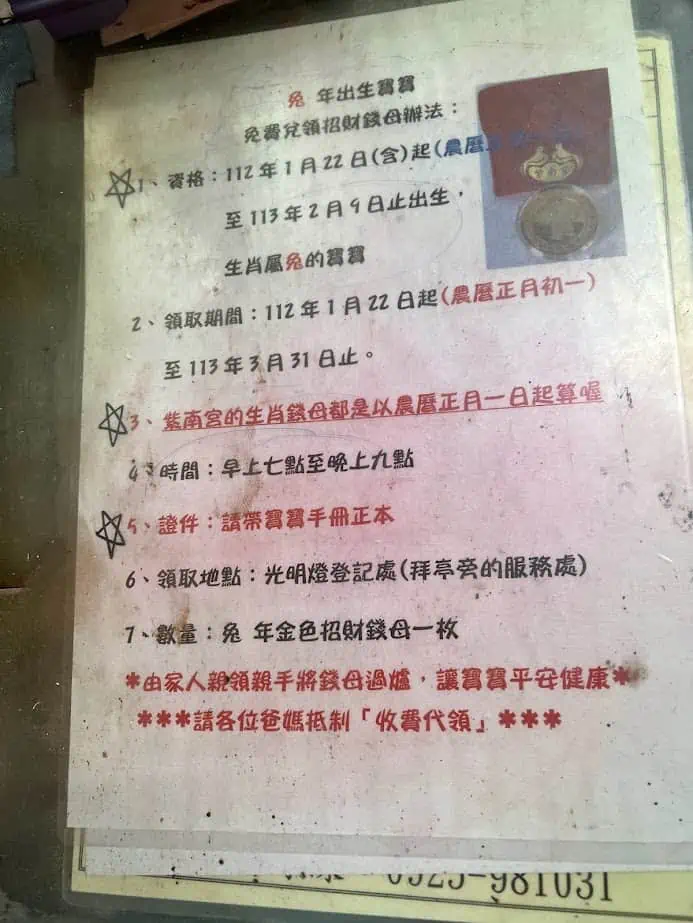 兔 年出生寶寶
免費兌領招財錢母辦法：
1、資格：112年1月22日(含)起(農曆
至113年2月9日止出生，
生肖屬兔的寶寶
2、領取期間：112年1月22日起(農曆正月初一)
至113年3月31日止。
3、紫南宮的生肖錢母都是以農曆正月一日起算喔
4、時間：早上七點至晚上九點
5、證件：請帶寶寶手冊正本
6、領取地點：光明燈登記處(拜亭旁的服務處)
7、數量：兔 年金色招財錢母一枚
*由家人親領親手將錢母過爐，讓寶寶平安健康*
***請各位爸媽抵制「收費代領」***
0925-981031